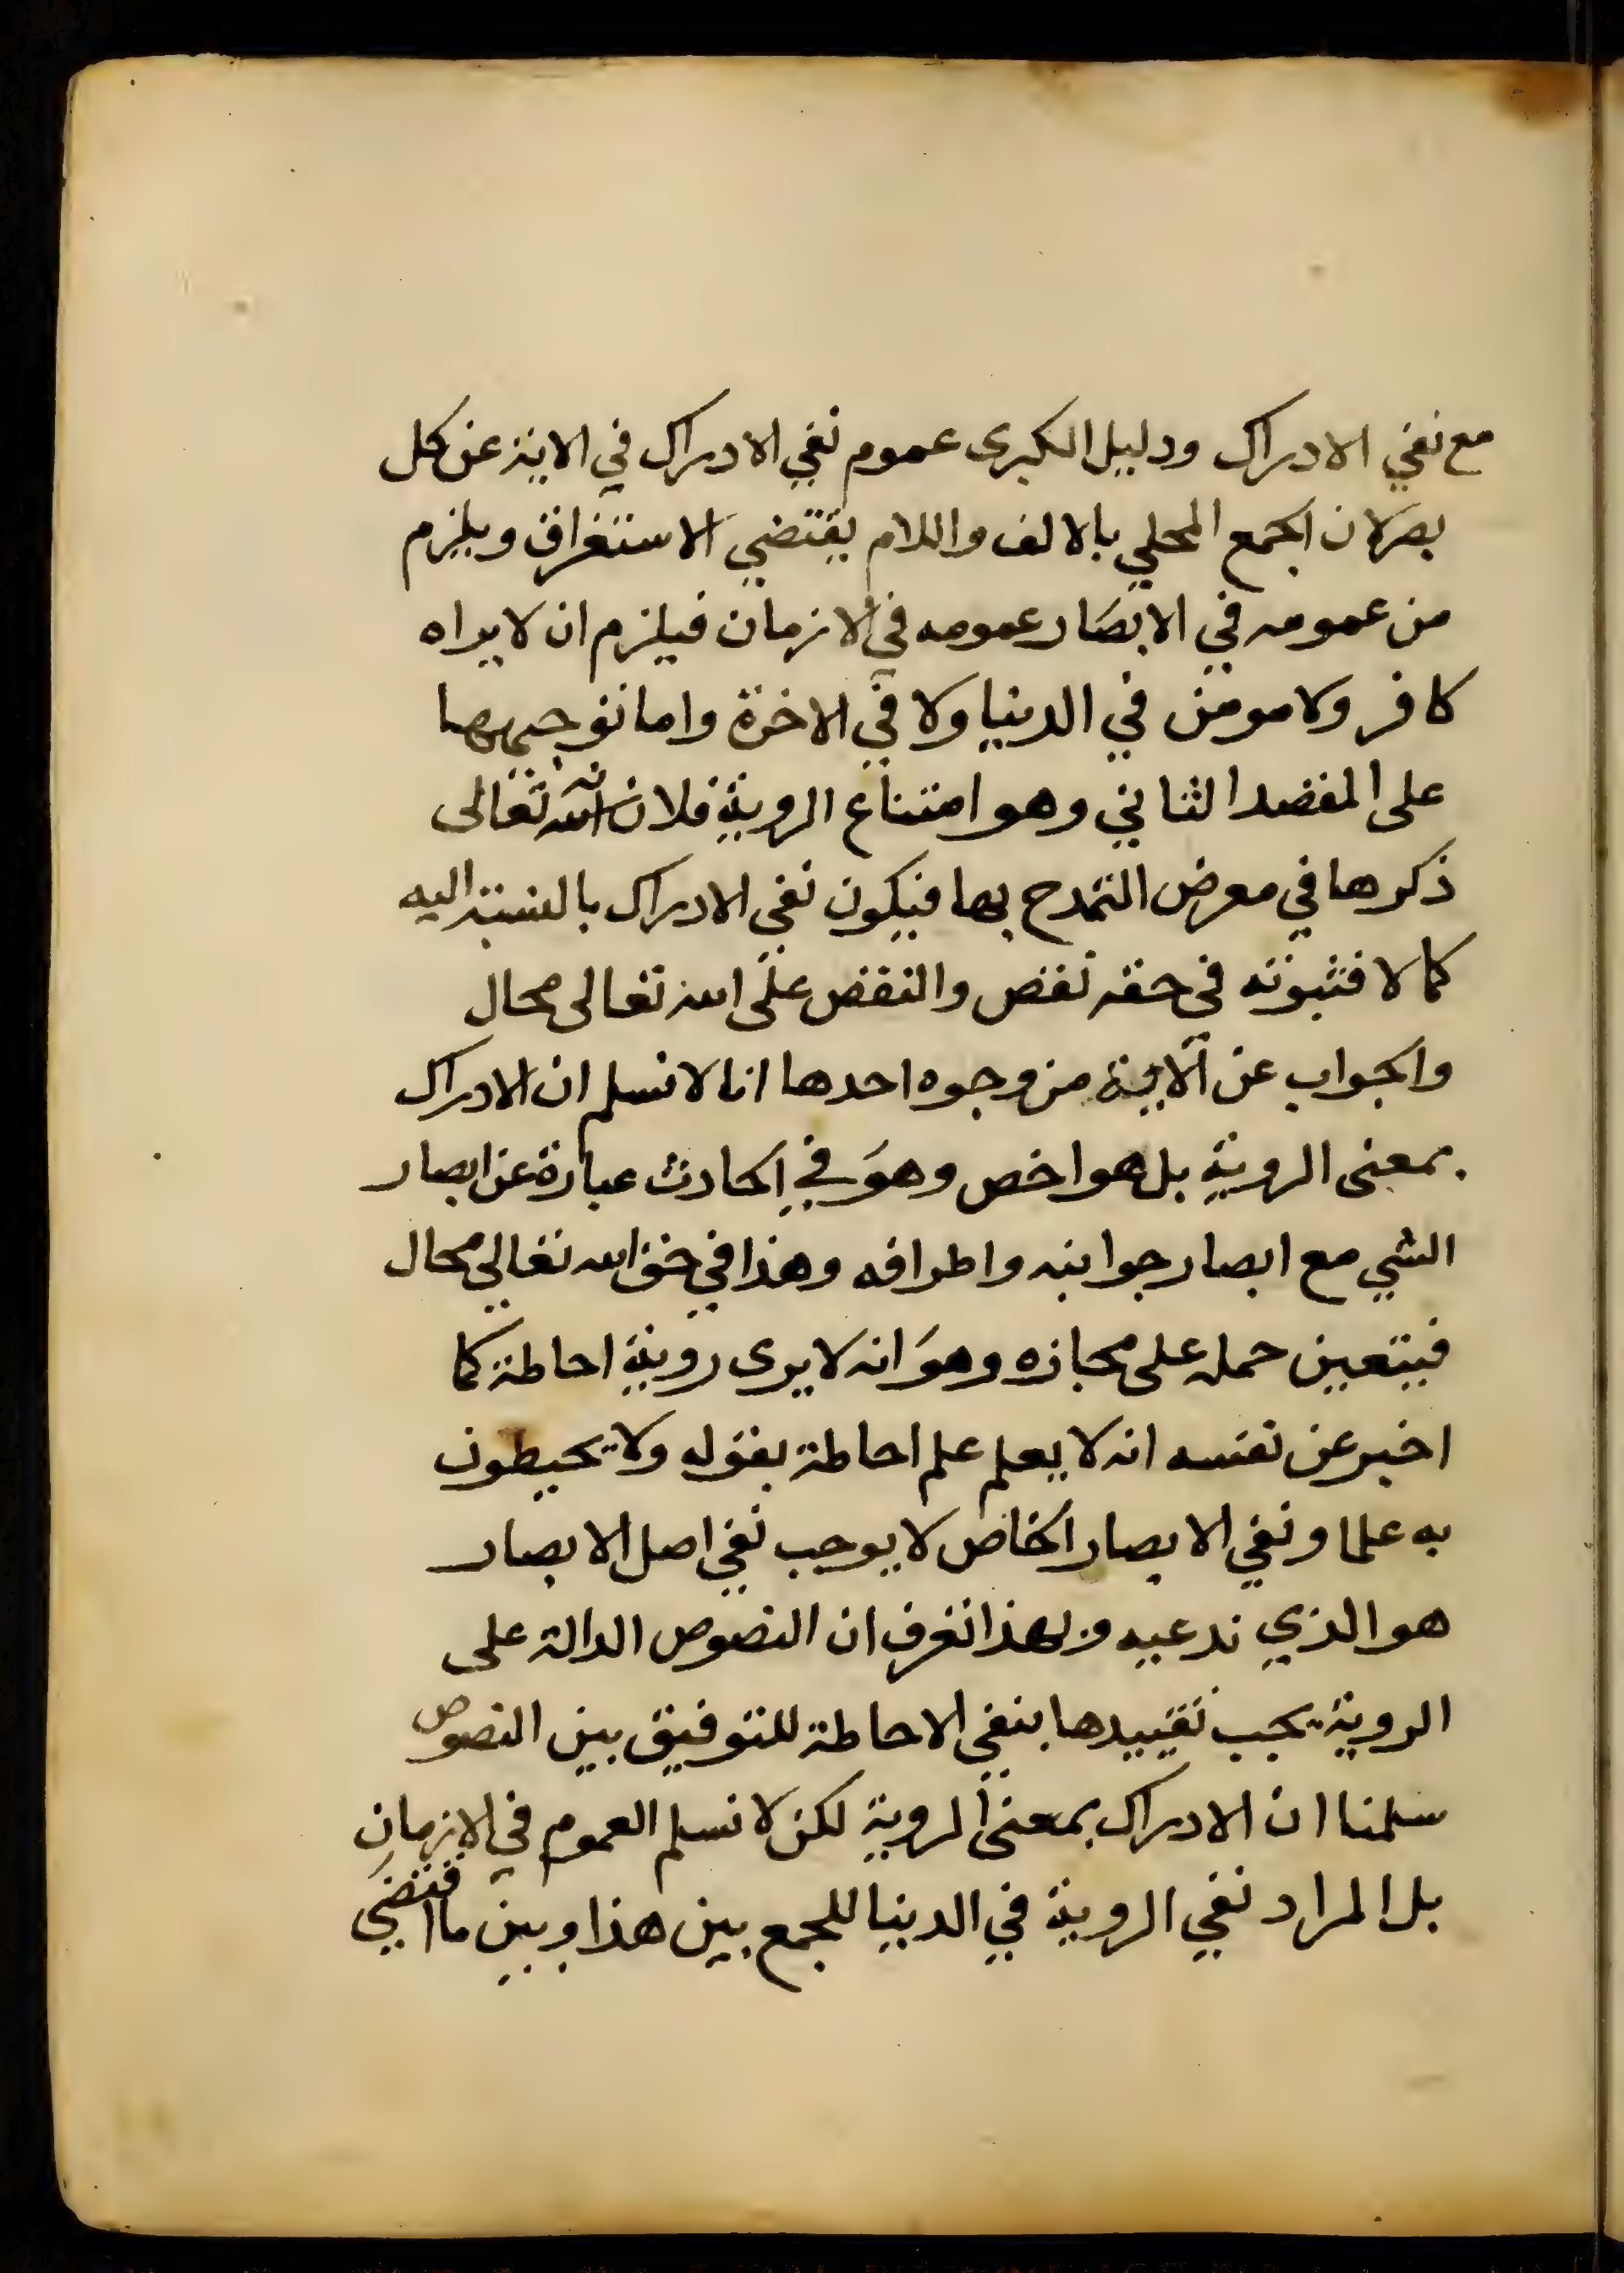 مع نفي الادراك ودليل الكبرى عموم نفي الادراك في الاية عن كل
بصر لان الجمع المحلي بالالف واللام يقتضي الاستغراق ويلزم
من عمومه في الابصار عمومه في الازمان فيلزم ان لا يراه
كافر ولا مومن في الدنيا ولا في الاخرة واما توجيهها
على المقصد الثاني وهو امتناع الروية فلانه الله تعالى
ذكرها في معرض التمدح بها فيكون نفي الادراك بالنسبة اليه
كمالا فثبوته في حقه نقص والنقص على الله تعالى محال
والجواب عن الاية من وجوه احدها انا لا نسلم ان الادراك
بمعنى الروية بل هو اخص وهو في الحادث عبارة عن ابصار
الشي مع ابصار جوانبه واطرافه وهذا في حق الله تعالى محال
فيتعين حمله على مجازه وهو انه لا يرى روية احاطة كما
اخبر عن نفسه انه لا يعلم علم احاطة بقوله ولا يحيطون
به علما ونفي الابصار الخاص لا يوجب نفي اصل الابصار
هو الذي ندعيه وبهذا تعرف ان النصوص الدالة على
الروية يجب تقييدها بنفي الاحاطة للتوفيق بين النصوص
سلمنا ان الادراك بمعنى الروية لكن لا نسلم العموم في الازمان
بل المراد نفي الروية في الدنيا للجمع بين هذا وبين ما اقتضي